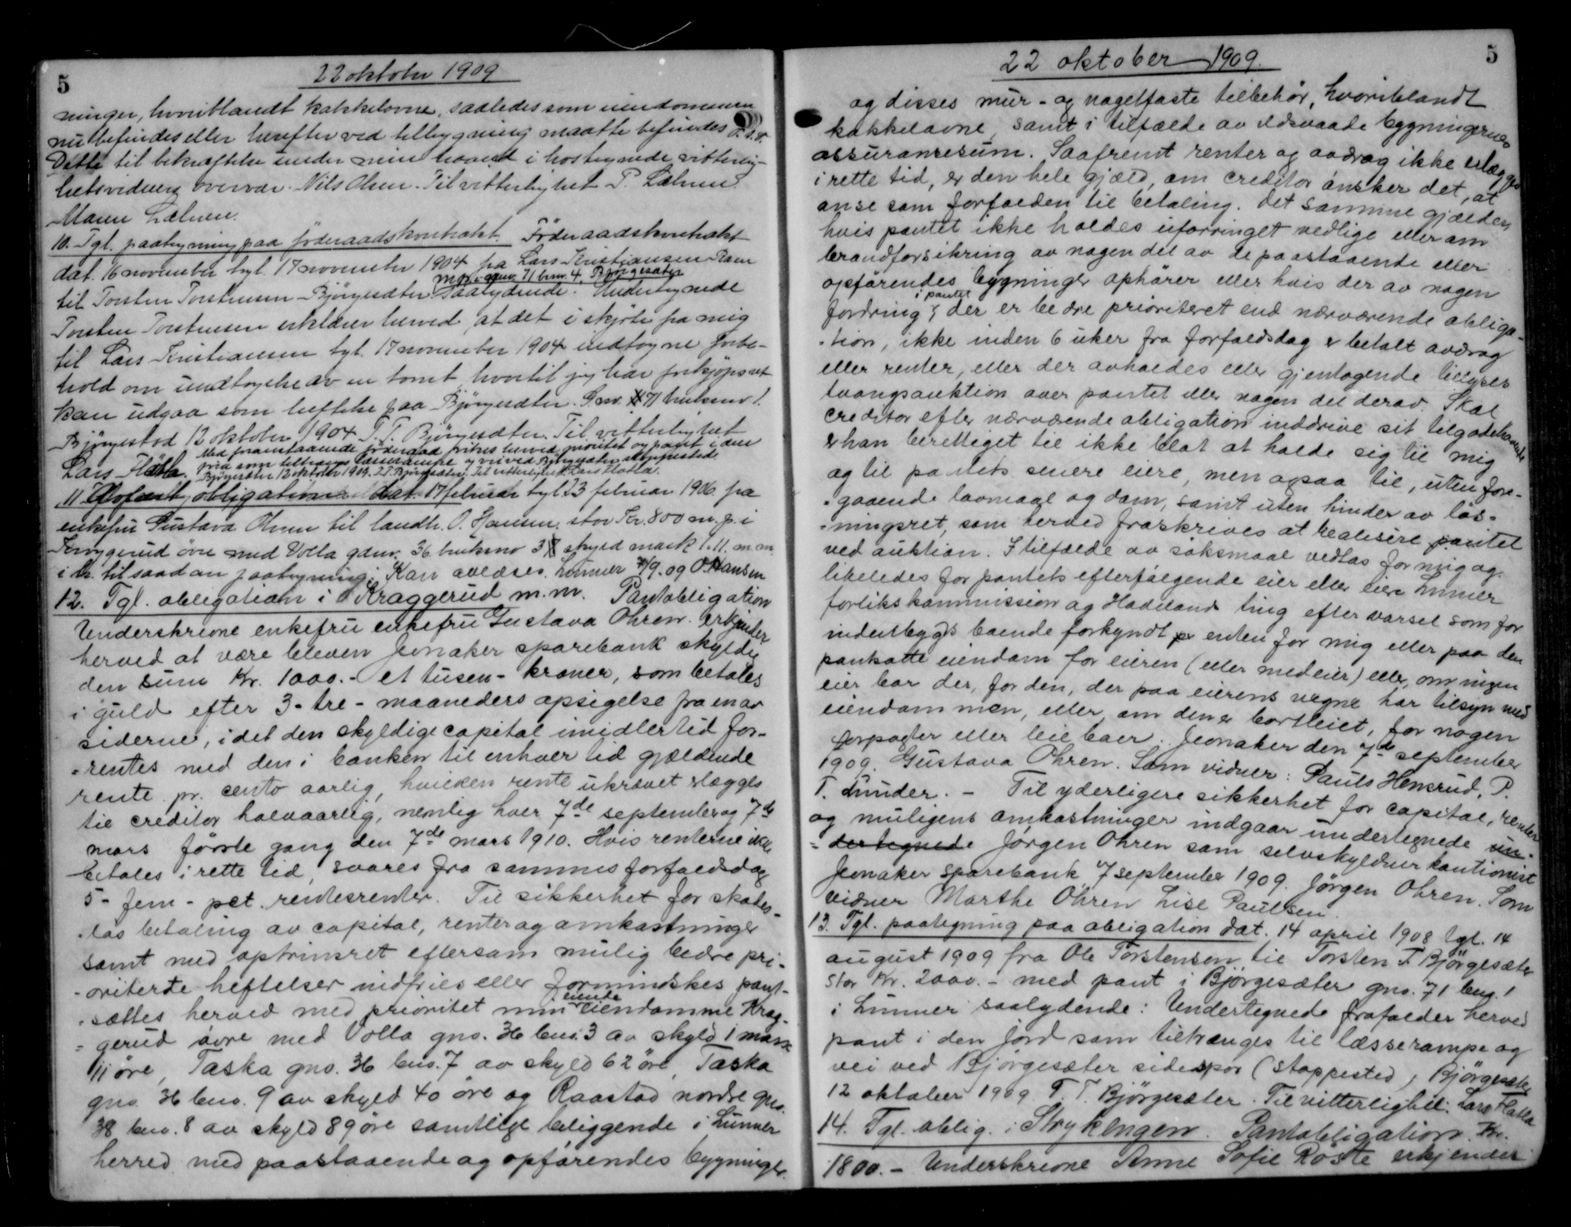 5
22 oktober 1909
ninger, hvoriblandt kakkelovne, saaledes som eiendommen
nu befindes eller herefter ved tilbygning maatte befindes
Dette til bekræftelse under min haand i hostegnede vitterlig-
hetsvidners overvær. Nils Olsen. Til vitterlighet P. Lælum
Maren Lælum.
10. Tgl. paategning paa föderaadskontrakt. Föderaadskontrakt
dat. 16 november tgl. 17 november 1904 fra Lars Kristiansen
til Torsten Torstensen Björgesæter Saalydende. Undertegnede
gno. 71 bno. 4. Björgesæter
Torsten Torstensen erklærer herved at det i skjöte fra mig
til Lars Kristiansen tgl. 17 november 1904 indtagne forbe-
hold om undtagelse av en tomt hvortil jeg har forkjöpsret
kan udgaa som heftelse paa Björgesæter. Gno. 71 bruksno 1.
Björgestad 12 oktober 1904. T. T. Björgesæter. Til vitterlighet
Lars Flatla.
Med foranstaaende föderaad vikes herved prioritet og pant i den
jord som tiltrænges læsserampe og vei ved Björgesæter stoppested
Björgesæter 12 oktober 1909. T.T. Björgesæter. Til vitterlighet Lars Flatla.
11. Avlæst obligation dat. 17 februar tgl. 23 februar 1906 fra
enkefru Gustava Ohren til landh. O. Hansen, stor Kr. 800 m. p. i
Kraggerud övre med Volla gdno. 36 bruksno 3 skyld mark 1.11. m.m.
i h. til saadan paategning: Kan avlæses. Lunner 7/9.09 O. Hansen
12. Tgl. obligation i Kraggerud m.m. Pantobligation
Underskrevne enkefru enkefru Gustava Ohren erkjender
herved at være bleven Jevnaker sparebank skyldig
den sum Kr. 1000.- et tusen - kroner, som betales
i guld efter 3 - tre - maaneders opsigelse fra en av
siderne, idet den skyldige capital imidlertid for-
-rentes med den i banken til enhver tid gjældende
rente pr. cento aarlig, hvilken rente ukrævet erlægges
til creditor halvaarlig, nemlig hver 7de september og 7de
mars första gang den 7de mars 1910. Hvis renterne ikke
betales i rette tid, svares fra sammes forfaldsdag
5 - fem - pct. rentesrenter. Til sikkerhet for skades-
-lös betaling av capital, renter og omkostninger
samt med optrinsret eftersom mulig bedre pri-
-oriterte heftelser indfries eller formindskes pant-
-sættes herved med prioritet min eiendomme Krag-
eiende
-gerud övre med Volla gno. 36 bno. 3 av skyld 1 mark
11 öre, Taska gno. 36 bno. 7 av skyld 62 öre, Taska
gno. 36 bno. 9 av skyld 40 öre og Raastad nordre gno.
38 bno. 8 av skyld 89 öre samtlige beliggende i Lunner
herred med paastaaende og opförendes bygninger
5
22 oktober 1909.
og disses mur- og nagelfaste tilbehör, hvoriblandt
kakkelovne, samt i tilfælde av ildsvaade bygningernes
assuransesum. Saafremt renter og avdrag ikke erlægges
i rette tid, er den hele gjæld, om creditor önsker det, at
anse som forfalden til betaling. Det samme gjælder,
hvis pantet ikke holdes uforringet vedlige eller om
brandforsikring av nogen del av de paastaaende eller
opförendes bygninger ophörer eller hvis der av nogen
fordring, der er bedre prioriteret end nærværende obliga-
i pantet
-tion, ikke inden 6 uker fra forfaldsdag er betalt avdrag
eller renter, eller der avholdes eller gjentagende tillyses
tvangsauktion over pantet eller nogen del derav. Skal
creditor efter nærværende obligation inddrive sit tilgodehavende
er han berettiget til ikke blot at holde sig til mig
og til pantets senere eiere, men ogsaa til, uten fore-
-gaaende lovmaal og dom, samt uten hinder av lös-
-ningsret, som herved fraskrives at realisere pantet
ved auktion. I tilfælde av söksmaal vedtas for mig og
likeledes for pantets efterfölgende eier eller eiere Lunner
forlikskommission og Hadeland ting efter varsel som for
indenbygds boende forkyndt enten for mig eller paa den
pantsatte eiendom for eieren (eller medeier) eller, om ingen
eier bor der, for den, der paa eierens vegne har tilsyn med
eiendommen, eller, om den er bortleiet, for nogen
forpagter eller leieboer. Jevnaker den 7de september
1909. Gustava Ohren. Som vidner: Pauls Hensrud, P.
T. Lunder. - Til yderligere sikkerhet for capital, renter
og muligens omkostninger indgaar undertegnede un-
-dertegnede Jörgen Ohren som selvskyldnerkautionist
Jevnaker sparebank 7 september 1909. Jörgen Ohren. Som
vidner Marthe Ohren Lise Paulsen
13. Tgl. paategning paa obligation dat. 14 april 1908 tgl. 14
august 1909 fra Ole Torstensen til Torsten T. Björgesæter
stor Kr. 2000.- med pant i Björgesæter gno. 71 bno. 1
i Lunner saalydende: Undertegnede frafalder herved
pant i den jord som tiltrænges til læsserampe og
vei ved Björgesæter sidespor (stoppested), Björgesæter
12 oktober 1909. T. T. Björgesæter. Til vitterlighet: Lars Flatla
14. Tgl. oblig. i Strykengen. Pantobligation. Kr.
1800.- Underskrevne Anne Sofie Roste erkjender